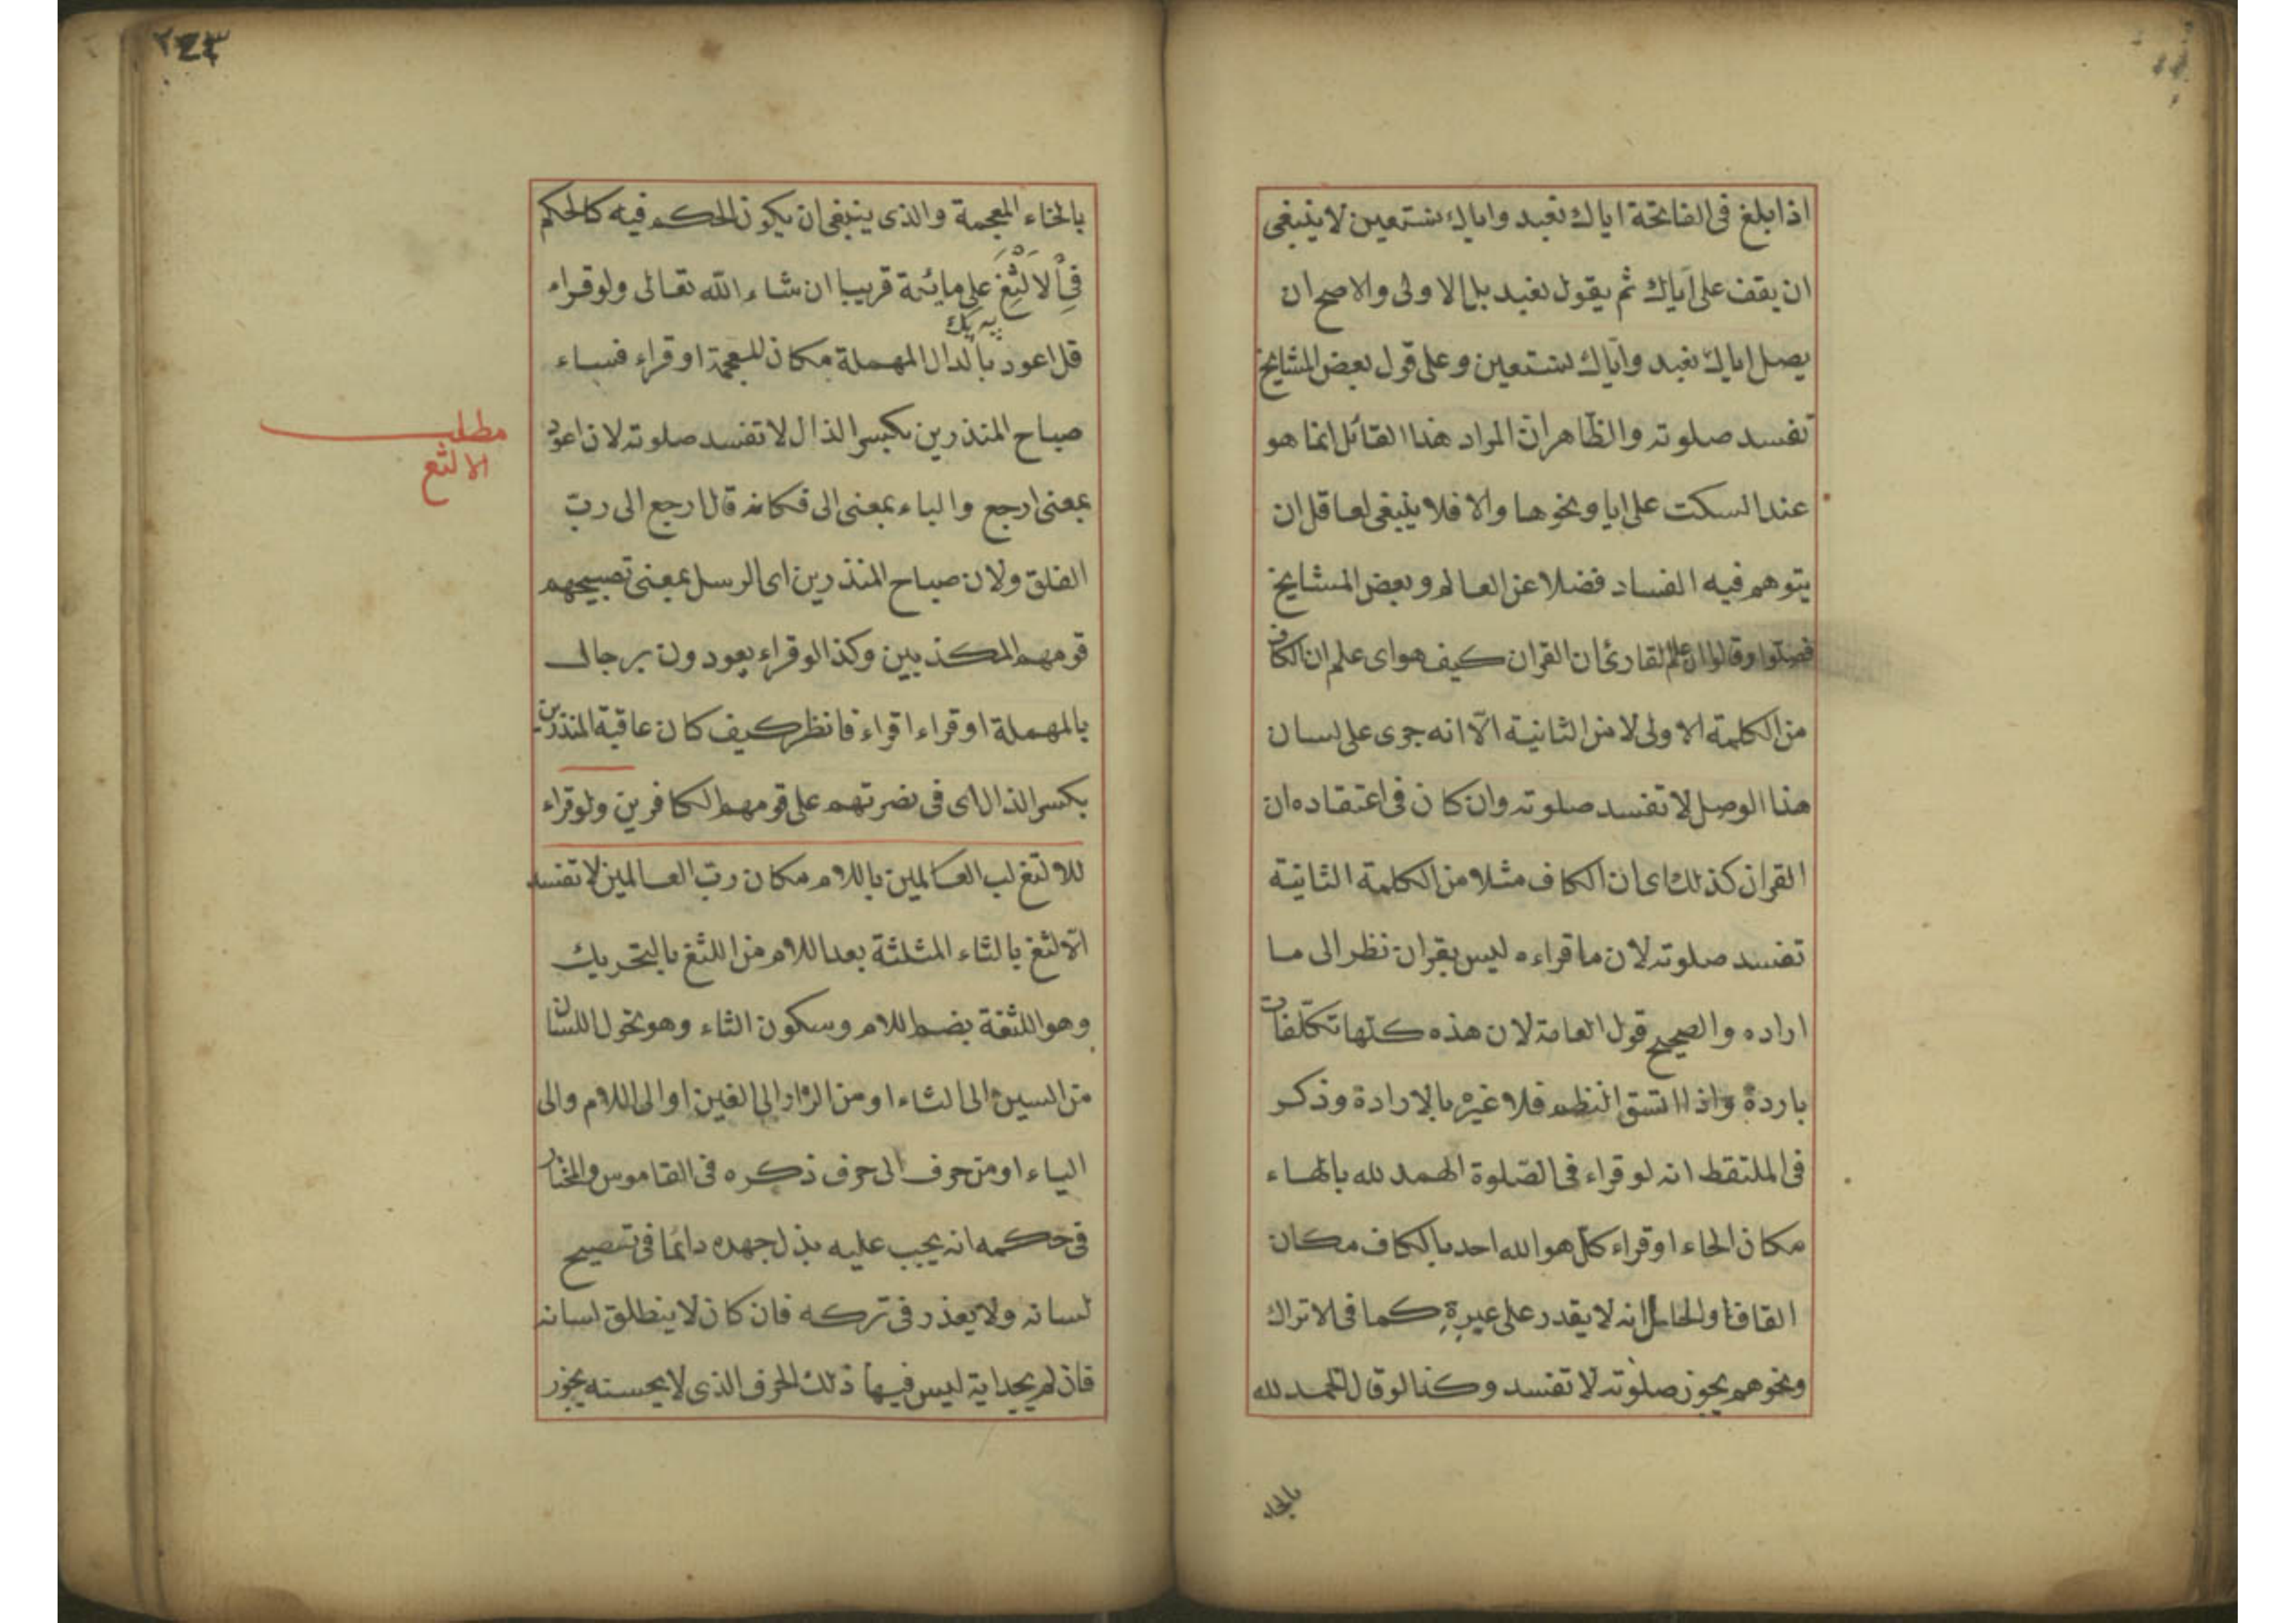 اذا بلغ فى الفاتحة اياك نعبد واياك نستعين لا ينبغى
ان يقف على اياك ثم يقول نعبد بل الاولى والاصح ان
يصل اياك نعبد واياك نستعين وعلى قول بعض المشايخ
تفسد صلوته والظاهر ان المراد هذا القائل انما هو
عند السكت على ايا ونحوها والا فلا ينبغى لعاقل ان
يتوهم فيه الفساد فضلا عن العالم وبعض المشايخ
فصلوا وقالوا ان علم القارئ ان القران كيف هو اى علم ان الكاف
من الكلمة الاولى لا من الثانية الا انه جرى على لسان
هذا الوصل لا تفسد صلوته وان كان فى اعتقاده ان
القران كذلك اى ان الكاف مثلا من الكلمة الثانية
تفسد صلوته لان ما قراءه ليس بقران نظر الى ما
اراده والصحيح قول العامة لان هذه كلها تكلفات
باردة واذا اتسق النظم فلا غيره بالارادة وذكر
فى الملتقط انه لو قراء فى الصلوة الهمد لله بالهاء
مكان الحاء او قراء كل هو الله احد بالكاف مكان
القاف والحال انه لا يقدر على غيره كما فى لاتراك
ونحوهم يجوز صلوته لا تفسد وكذا لو قال الخمد لله
بالخاء
٢٤٣
بالخاء المعجمة والذى ينبغى ان يكون الحكم فيه كالحكم
فى الالثغ على ما ياتى قريبا ان شاء الله تعالى ولو قراء
قل اعود بالدال المهملة مكان المعجمة او قراء فساء
صباح المنذرين بكسر الذال لا تفسد صلوته لان اعود
بمعنى ارجع والباء بمعنى الى فكانه قال ارجع الى رب
الفلق ولان صباح المنذرين اى الرسل بمعنى تصبيحهم
قومهم المكذبين وكذا لو قراء يعودون برجال
بالمهملة او قراء اقراء فانظر كيف كان عاقبة المنذرين
بكسر الذال اى فى نصرتهم على قومهم الكافرين ولو قراء
للالثغ لب العالمين باللام مكان رب العالمين لا تفسد
الالثغ بالثاء المثلثة بعد اللام من اللثغ بالتحريك
وهو اللثغة بضم اللام وسكون الثاء وهو تحول اللسان
من السين الى الثاء او من الراء الى الغين او الى اللام والى
الياء او من حرف الى حرف ذكره فى القاموس والمختار
فى حكمه انه يجب عليه بذل جهده دائما فى تصحيح
لسانه ولا يعذر فى تركه فان كان لا ينطلق لسانه
فان لم يجد اية ليس فيها ذلك الحرف الذى لا يحسنه يجوز
مطلب
الالثغ